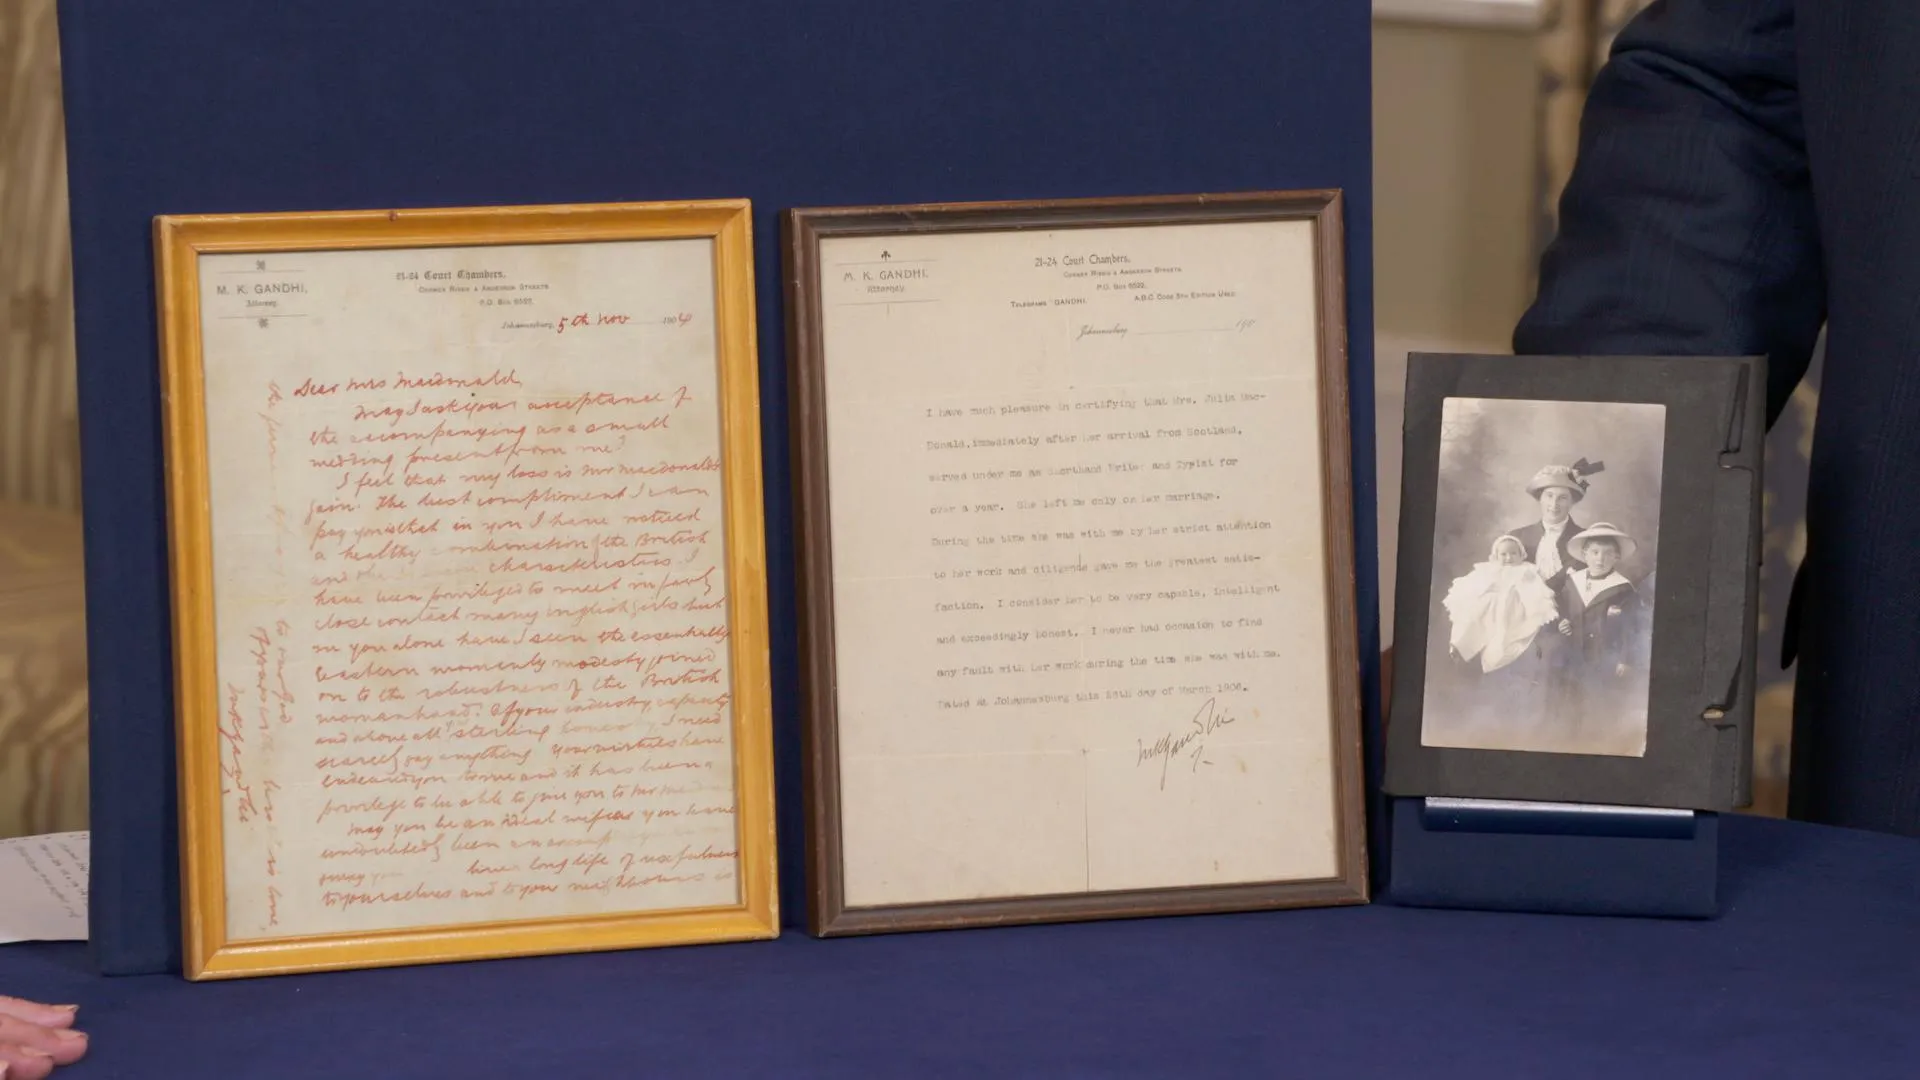 M. K. GANDHI,
Attorney.
21-24 Court Chambers,
CORNER RISSIK & ANDERSON STREETS
P.O. Box 6522,
Johannesburg, 5th Nov 1904
Dear Mrs Macdonald,
May I ask your acceptance of
the accompanying as a small
wedding present from me?
I feel that my loss is Mr Macdonald's
gain. The best compliment I can
pay you is that in you I have noticed
a healthy combination of the British
and the characteristics. I
have been privileged to meet in fairly
close contact many English girls but
in you alone have I seen the essentially
Eastern womanly modesty joined
on to the robustness of the British
womanhood. Of your industry capacity
and above all sterling honesty I need
scarcely say anything. Your virtues have
endeared you to me and it has been a
privilege to be able to give you to Mr
May you be an ideal wife as you have
undoubtedly been an
live a long life of usefulness
to yourselves and to your neighbours is
the
to our God
love
MKGandhi
M. K. GANDHI.
Attorney.
21-24 Court Chambers,
CORNER RISSIK & ANDERSON STREETS
P.O. Box 6522,
TELEGRAMS "GANDHI.
A.B.C. CODE 5TH EDITION USED
Johannesburg 190
I have much pleasure in certifying that Mrs. Julia Mac-
Donald, immediately after her arrival from Scotland,
served under me as Shorthand Writer and Typist for
over a year. She left me only on her marriage.
During the time she was with me by her strict attention
to her work and diligence gave me the greatest satis-
faction. I consider her to be very capable, intelligent
and exceedingly honest. I never had occasion to find
any fault with her work during the time she was with me.
Dated at Johannesburg this day of March 1906.
MKGandhi